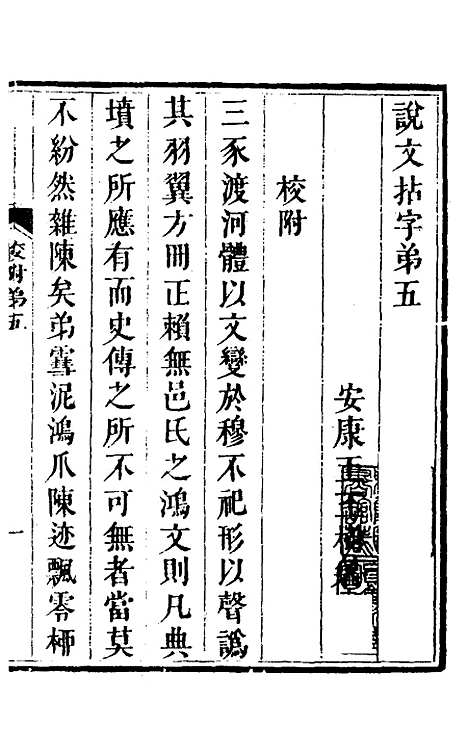 說文拈字弟五
安康王玉樹
校附
三豕渡河體以文變於穆不祀形以聲譌
其羽翼方冊正賴無邑氏之鴻文則凡典
墳之所應有而史傳之所不可無者當莫
不紛然雜陳矣弟雪泥鴻爪陳迹飄零桺
校附弟五
一